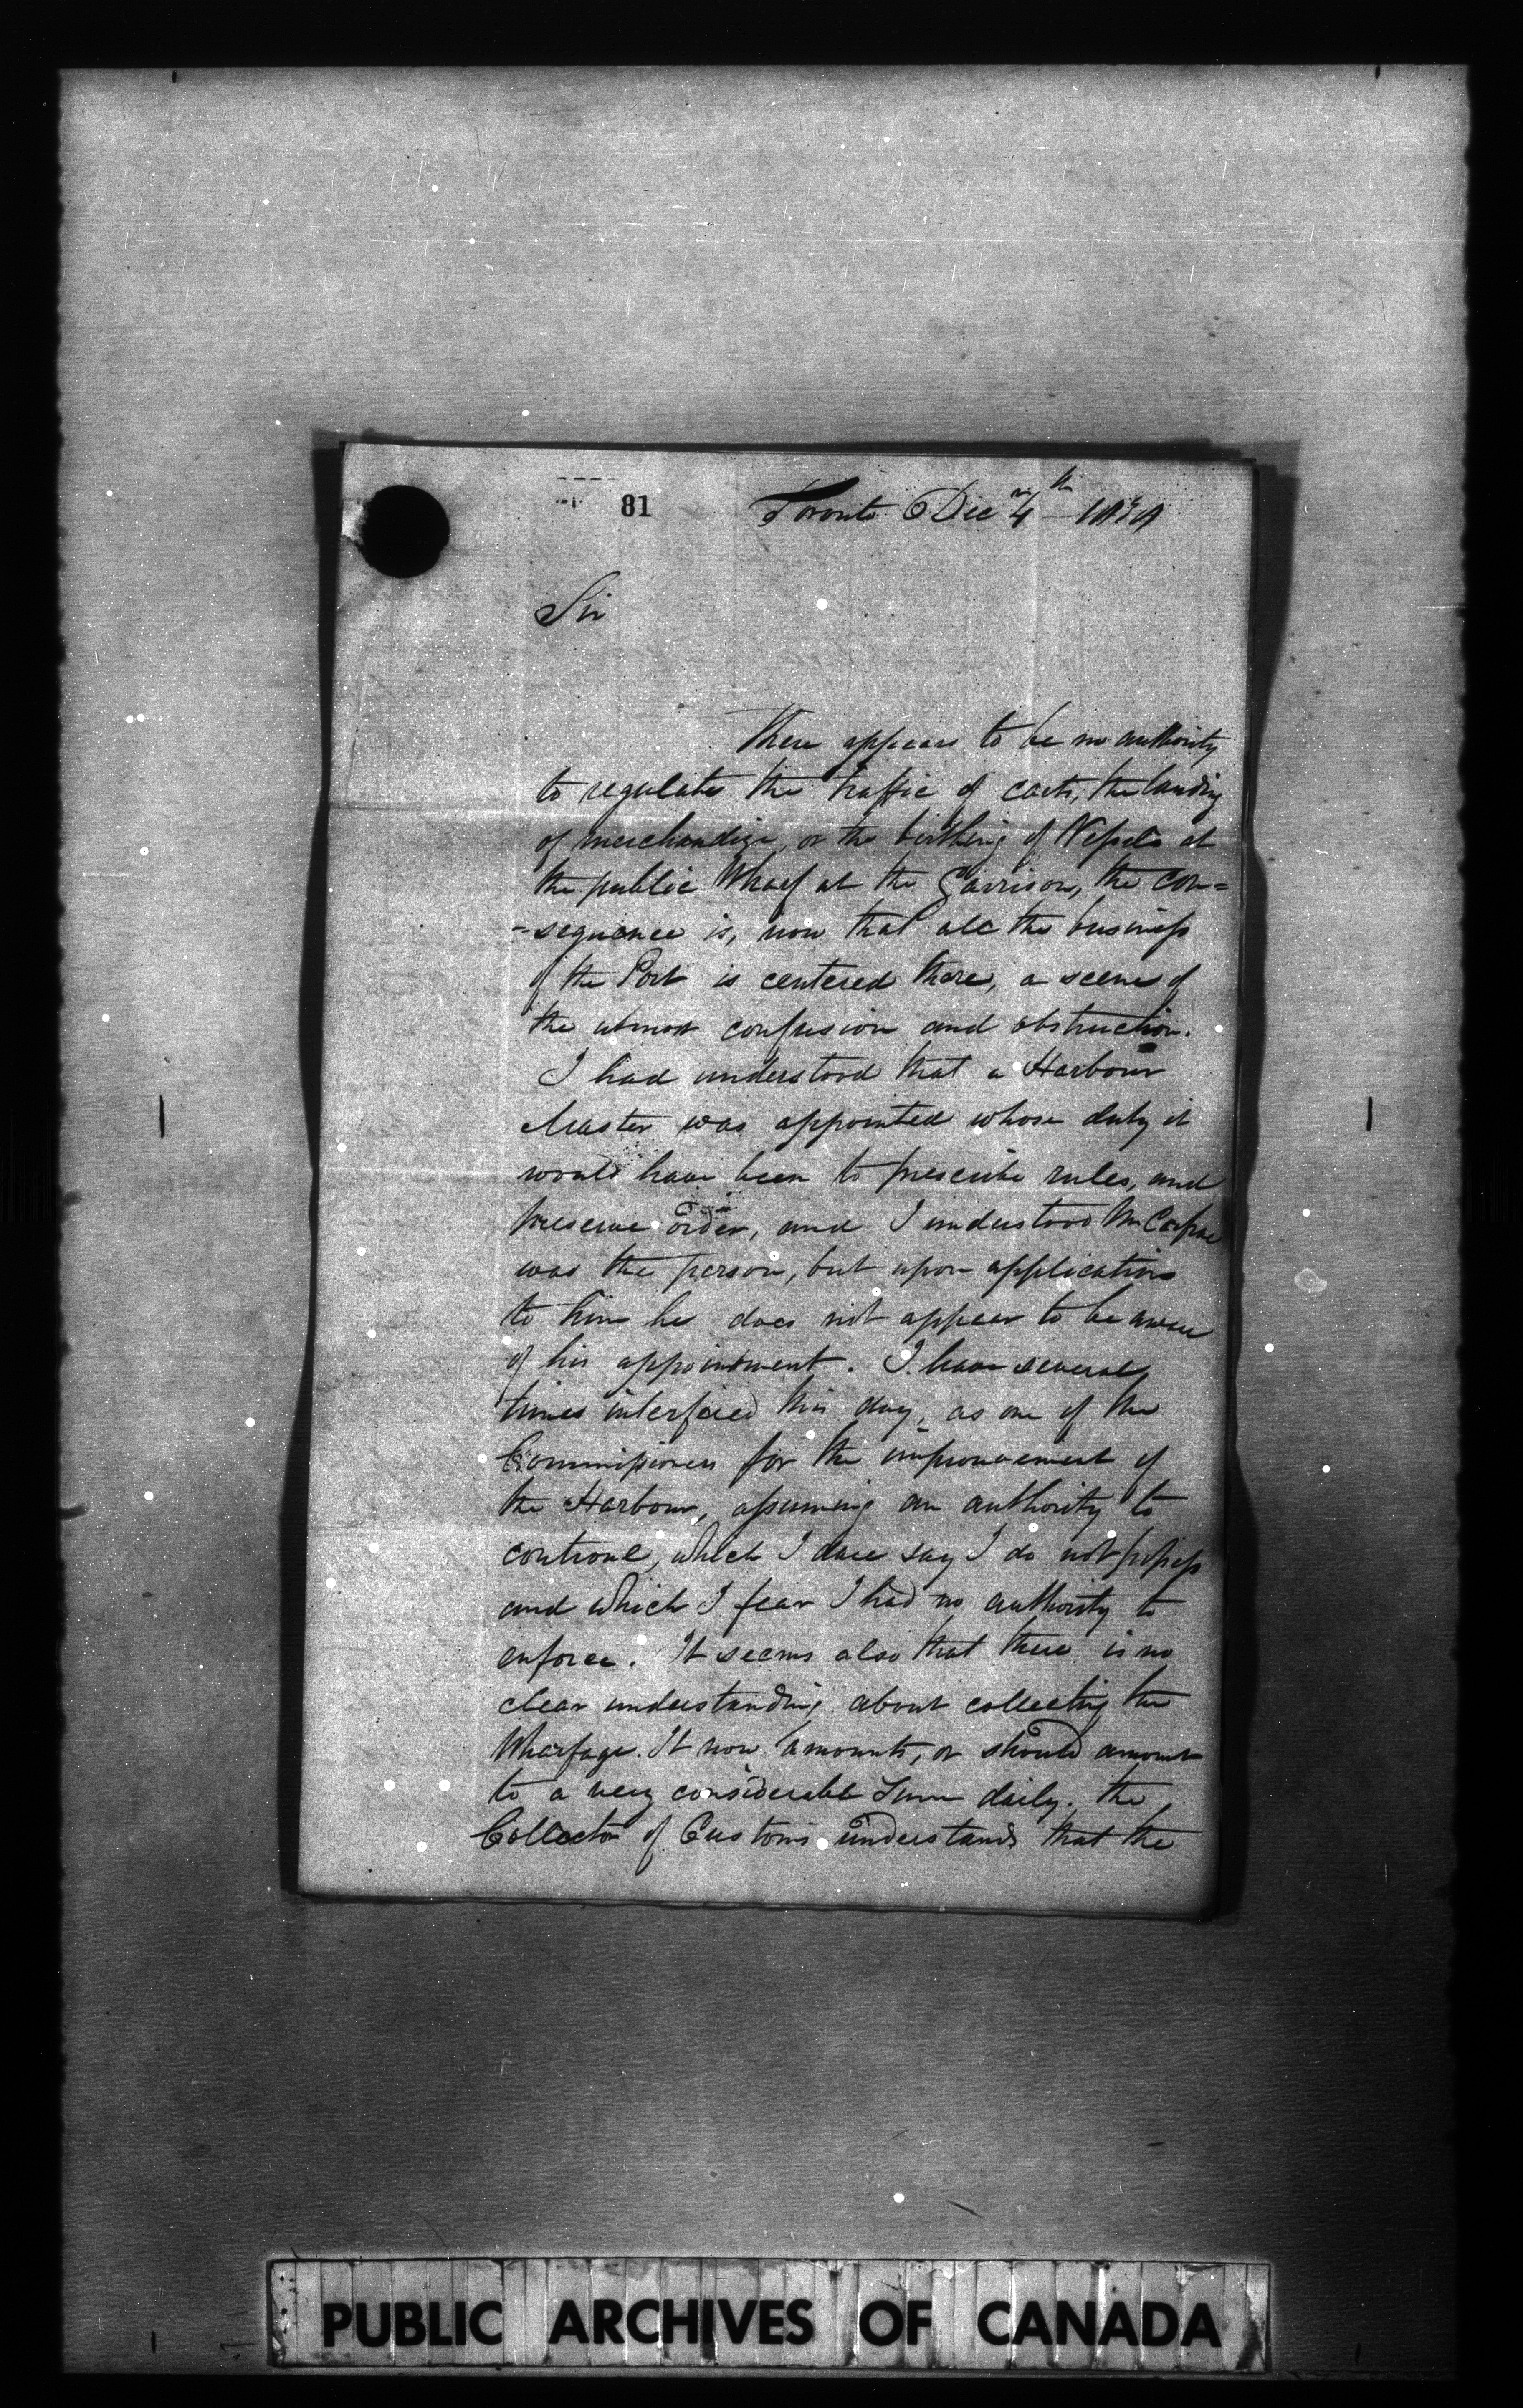 81
Toronto Dec 4th
Sir
There appears to be no authority
to regulate the traffic of carts, the landing
of merchandize, or the birthing of Vessels at
the public Wharf at the Garrison, the con=
-sequence is, now that all the business
of the Port is centered there, a scene of
the utmost confusion and obstruction.
I had understood that a Harbour
Master was appointed whose duty it
would have been to prescribe rules, and
preserve order, and I understood Mr
was the person, but upon application
to him he does not appear to be aware
of his appointment. I have several
times interfered this day, as one of the
Commissioners for the improvement of
the Harbour, assuming an authority to
controul, which I dare say I do not possess
and which I fear I had no authority to
enforce. It seems also that there is no
clear understanding about collecting the
Wharfage. It now amounts, or should amount
to a very considerable Sum daily. the
Collector of Customs understands that the
PUBLIC ARCHIVES OF CANADA